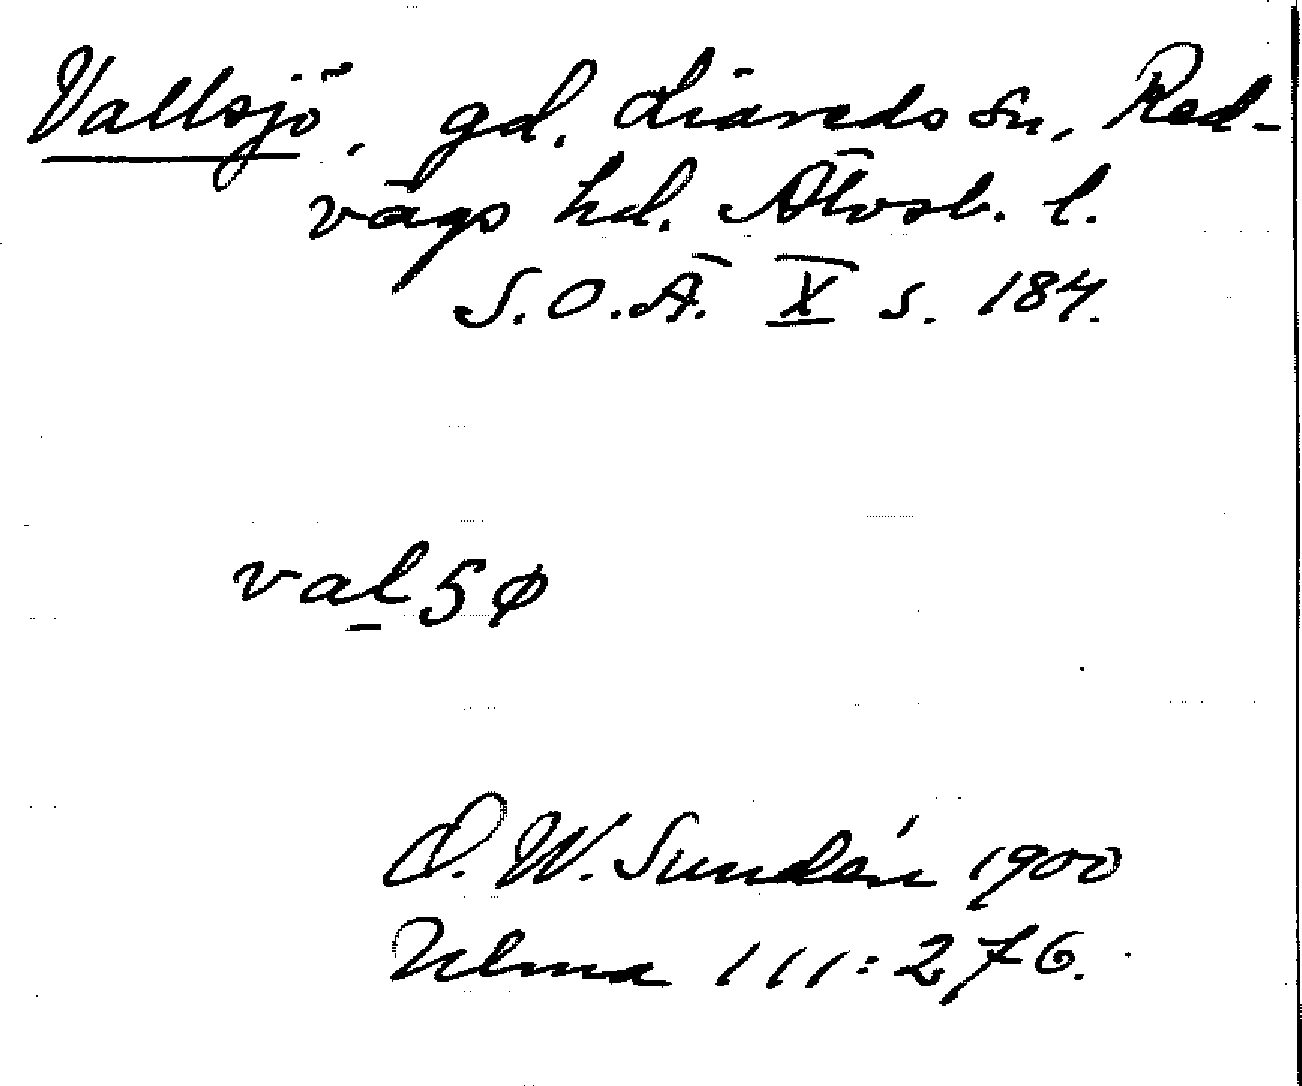 Vallsjö, gd. Liareds sn, Red-
vägs hd. Älvsb. l.
S.O.Ä. X s. 184.
val5ø
D. W. Sundén 1900
Ulma 111:276.